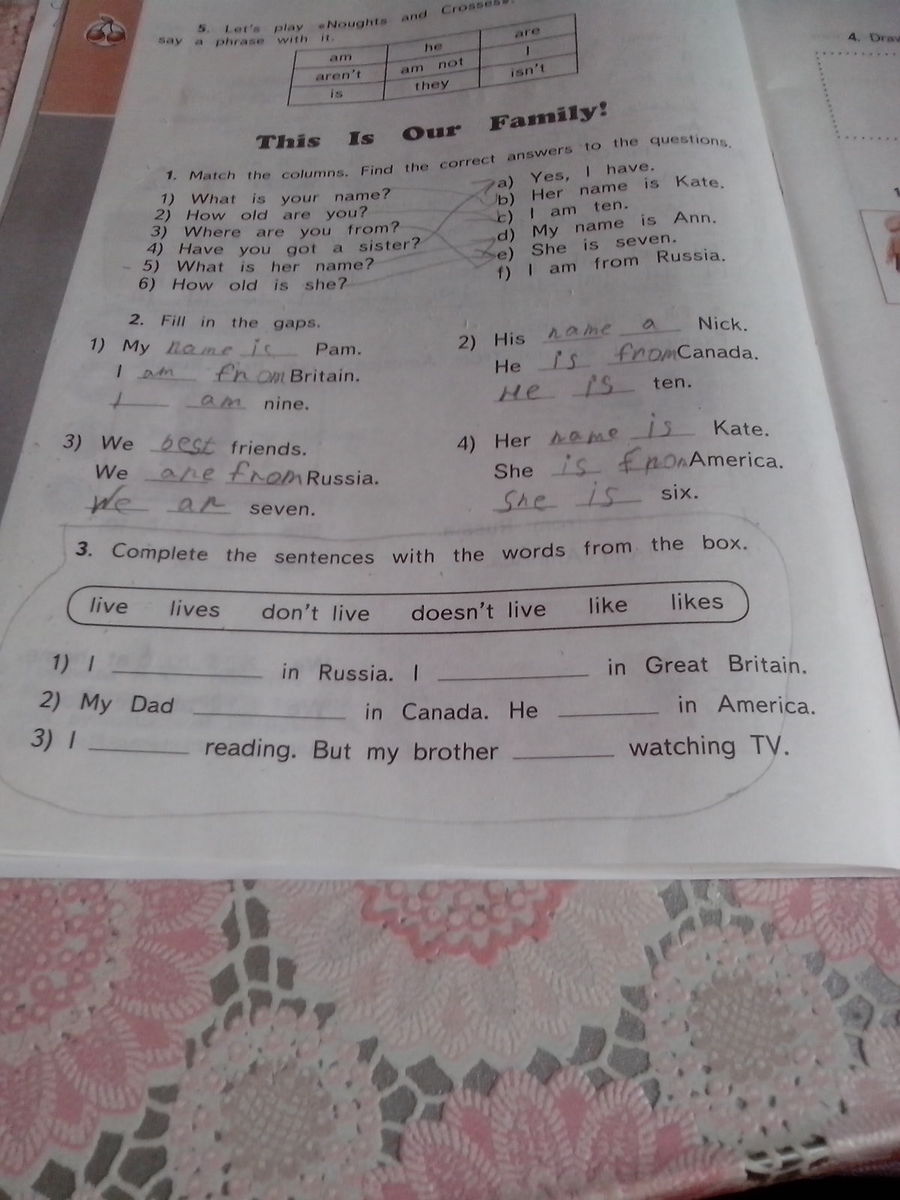 5. Let's play «Noughts and Crosses».
say a phrase with it.
am he are
aren't am not I
is they isn't
This Is Our Family!
1. Match the columns. Find the correct answers to the questions.
1) What is your name? a) Yes, I have.
2) How old are you? b) Her name is Kate.
3) Where are you from? c) I am ten.
4) Have you got a sister? d) My name is Ann.
5) What is her name? e) She is seven.
6) How old is she? f) I am from Russia.
2. Fill in the gaps.
1) My name is Pam.
I am from Britain.
I am nine.
2) His name a Nick.
He is from Canada.
He is ten.
3) We best friends.
We are from Russia.
We ar seven.
4) Her name is Kate.
She is from America.
She is six.
3. Complete the sentences with the words from the box.
live lives don't live doesn't live like likes
1) I ____ in Russia. I ____ in Great Britain.
2) My Dad ____ in Canada. He ____ in America.
3) I ____ reading. But my brother ____ watching TV.
4. Draw